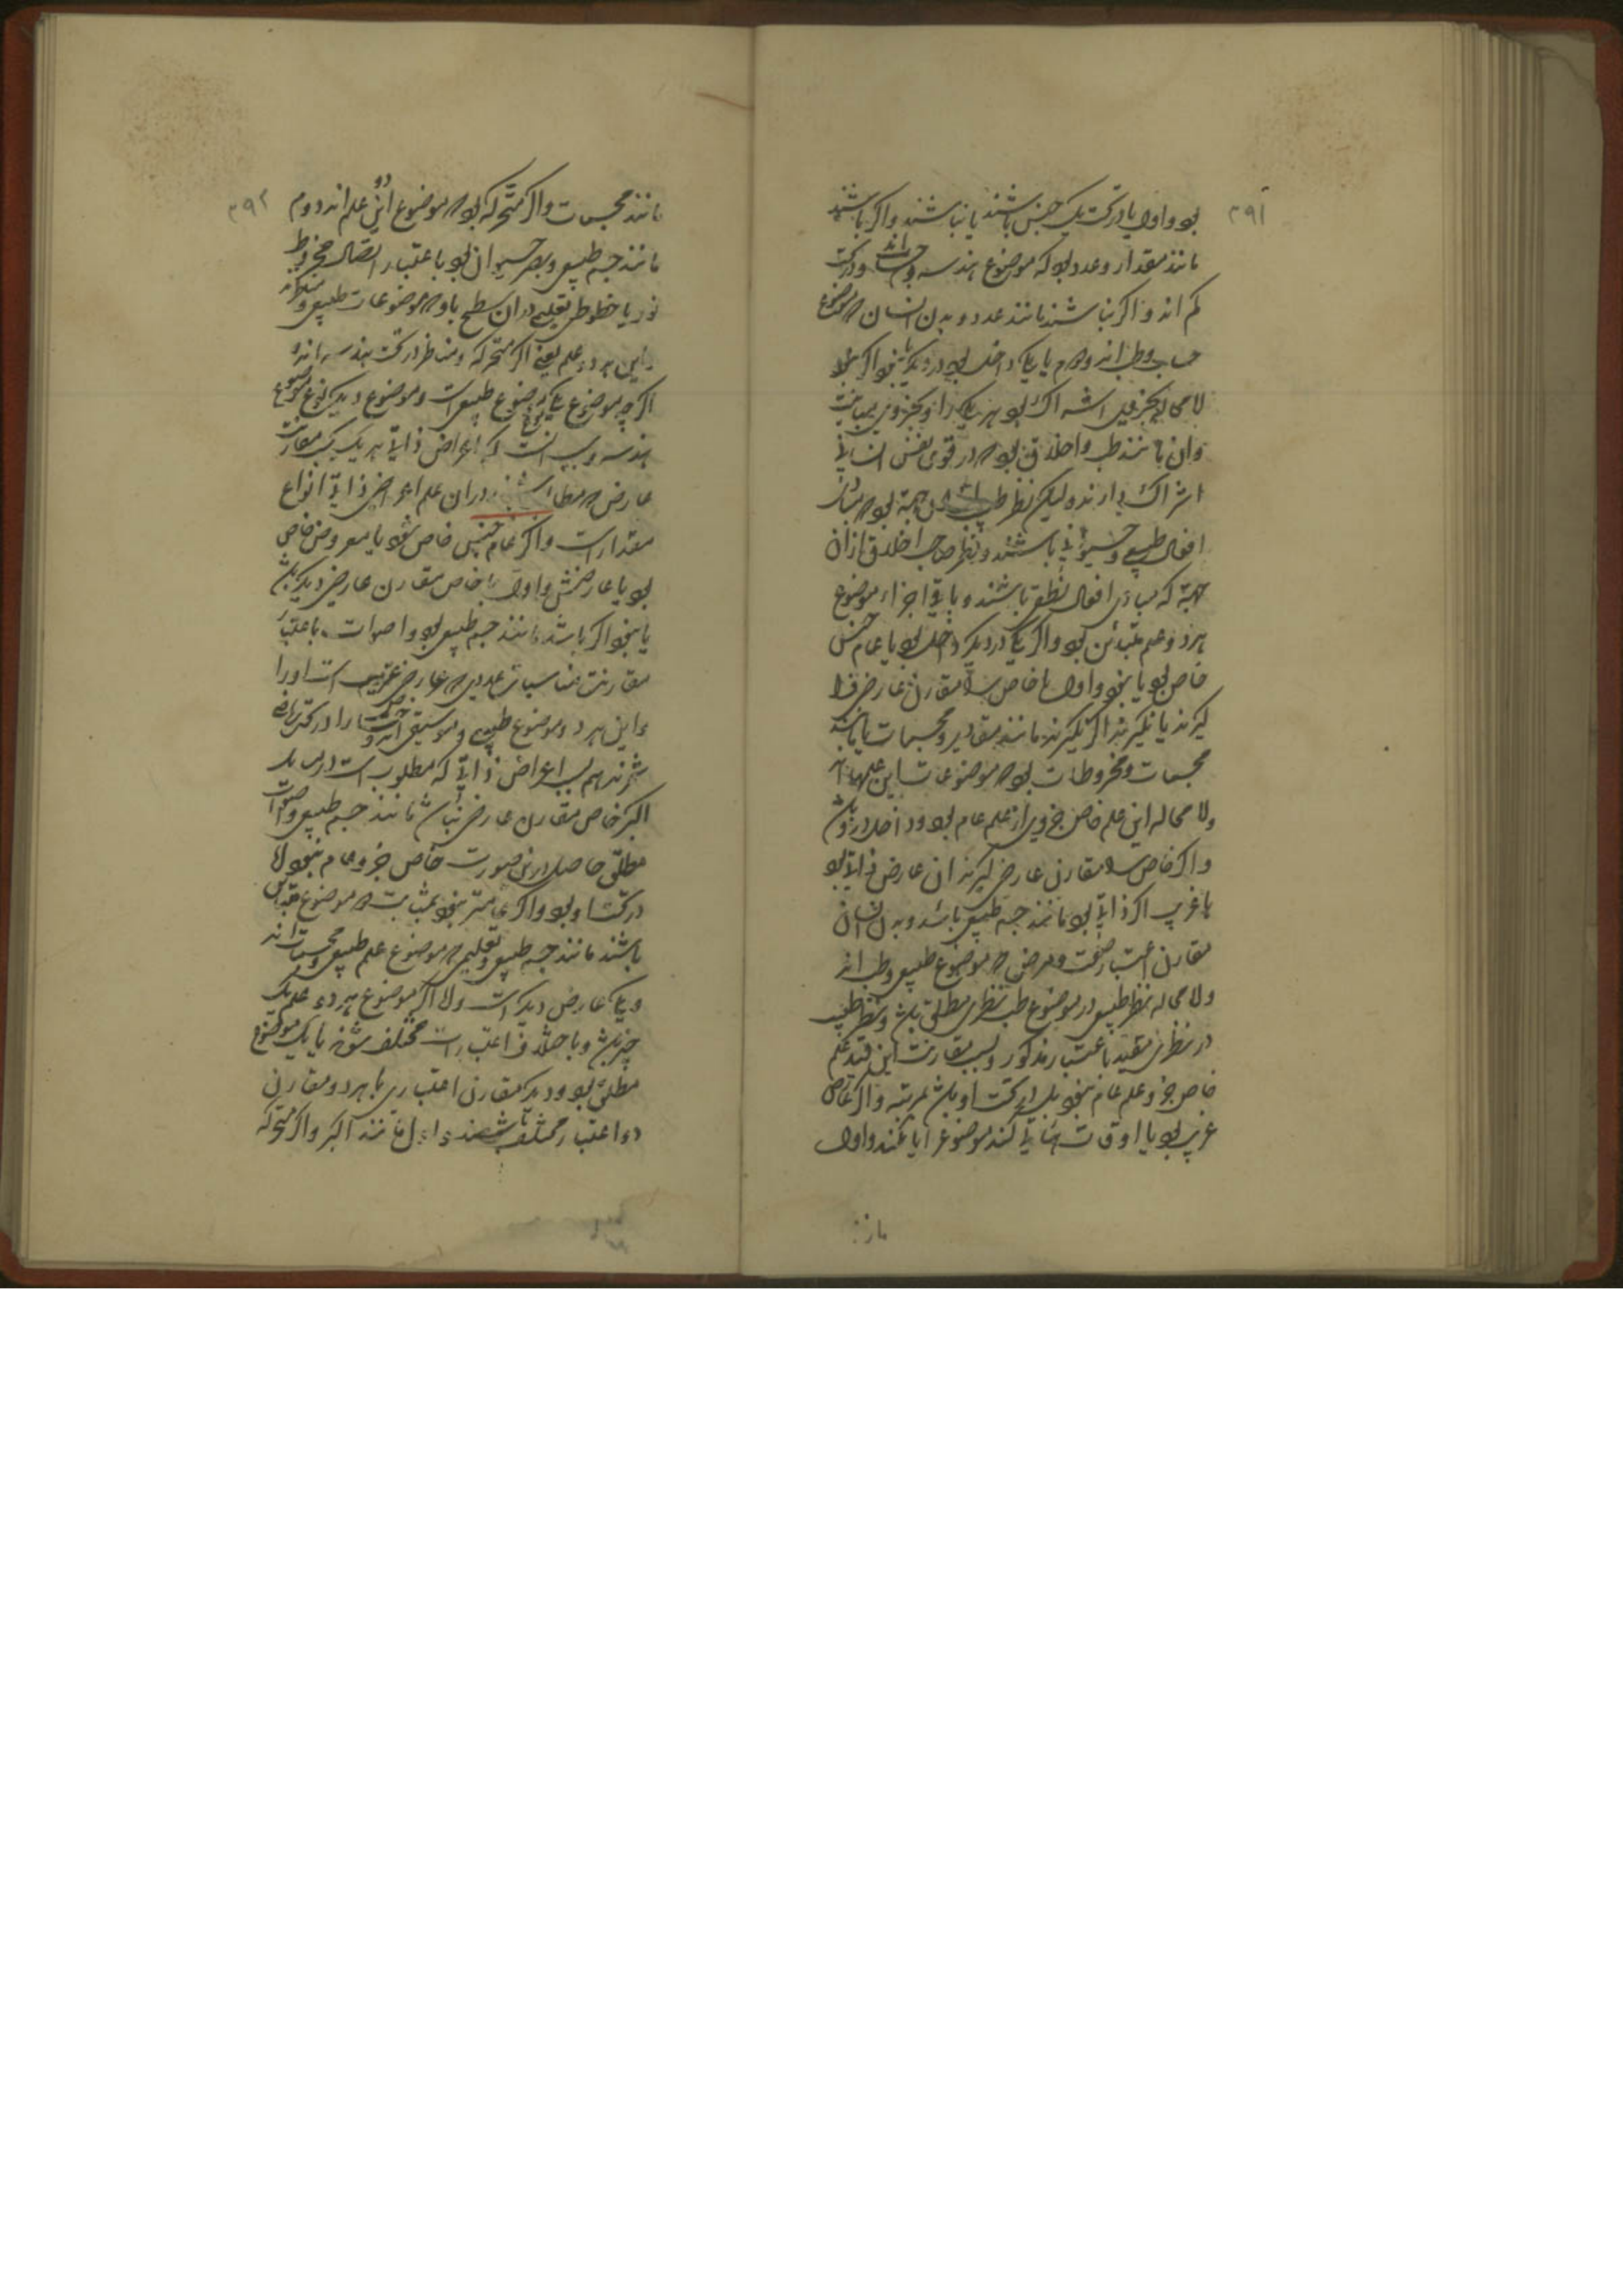 ۳۹۱
بود و اول یا در تحت یک جنس باشند یا نباشند و اگر باشند
مانند مقدار و عدد بود که موضوع هندسه و حساب اند و در تحت
کم اند و اگر نباشند مانند عدد و بدن انسان که موضوع
حساب و طب اند و دوم یا یکی داخل بود در دیگر یا نبود اگر نبود
لامحاله بجزوی اشتراک بود هر یکی را و بجزوی مباینت
و آن مانند طب و اخلاق بود که در قوی نفس انسانی
اشتراک دارند و لیکن نظر طب از آن جهة بود که مبادی
افعال طبیعی و حیوانی باشند و نظر صاحب اخلاق از آن
جهة که مبادی افعال نطقی باشند و باقی اجزاء موضوع
هر دو علم متباین بود و اگر یکی در دیگر داخل بود یا عام جنس
خاص بود یا نبود و اول یا خاص را مقارن عارضی فرا
گیرند یا نگیرند اگر نگیرند مانند مقادیر و مجسمات یا مانند
مجسمات و مخروطات بود که موضوعات این علمها اند
و لامحاله این علم خاص جزوی از علم عام بود و داخل در او باشد
و اگر خاص را مقارن عارضی گیرند آن عارض ذاتی بود
یا غریب اگر ذاتی بود مانند جسم طبیعی باشد و بدن انسان
مقارن اعتبار صحت و مرض که موضوع طبیعی و طب اند
و لامحاله نظر طبیعی در موضوع طب نظری مطلق باشد و نظر طبیب
در نظری مقید باعتبار مذکور و بسبب مقارنت این قید علم
خاص جزو علم عام نبود بل در تحت او باشد بمرتبه و اگر عارض
غریب بود یا اوقات ثانیا کند موضوع را یا نکند و اول
مانند
۳۹۲
مانند مجسمات و اکر متحرکه بود که موضوع این دو علم اند و دوم
مانند جسم طبیعی و بصر حیوان بود باعتبار اتصال مخروط
نور یا خطوط تعلیمی در آن سطح باو که موضوعات طبیعی و مناظر اند
و این هر دو علم یعنی اکر متحرکه و مناظر در تحت هندسه اند و
اگر چه موضوع یکی نوع موضوع طبیعی است و موضوع دیگر نوع موضوع
هندسه و سبب آنست که اعراض ذاتی هر یک بسبب مقارنت
عارض که مطالب باشند در آن علم اعراض ذاتی انواع
مقدار است و اگر عام جنس خاص نبود یا معروض خاص
بود یا عارضش و اول یا خاص مقارن عارضی دیگر باشد
یا نبود اگر باشد مانند جسم طبیعی بود و اصوات باعتبار
مقارنت مناسبات عددی که عارضی غریب است او را
و این هر دو موضوع طبیعی و موسیقی اند و موسیقی را در تحت ریاضی
شمرند هم بسبب اعراض ذاتی که مطلوب است در مسائل
اگر خاص مقارن عارضی نباشد مانند جسم طبیعی و اصوات
مطلق حاصل در این صورت خاص جزو عام نبود لا
در تحت او بود و اگر عامتر نبود بمثابت دو موضوع متداخل
باشند مانند جسم طبیعی و تعلیمی که موضوع علم طبیعی و مجسمات اند
و یکی عارض دیگر است و لا اگر موضوع هر دو علم یک
چیز باشد و باختلاف اعتبارات مختلف شوند یا یک موضوع
مطلق بود و دیگر مقارن اعتباری یا هر دو مقارن
دو اعتبار مختلف باشند و اول مانند اکر و اکر متحرکه